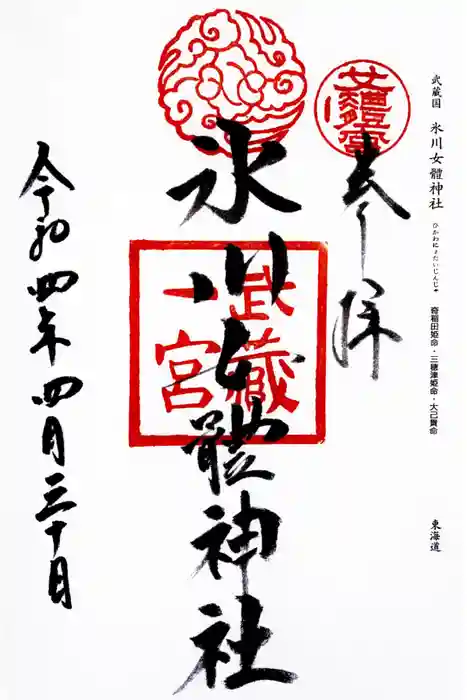 武蔵国 氷川女體神社 ひかわにょたいじんじゃ 奇稲田姫命・三穂津姫命・大己貴命 東海道
奉拝
氷川女體神社
武藏
一宮
令和四年四月三十日